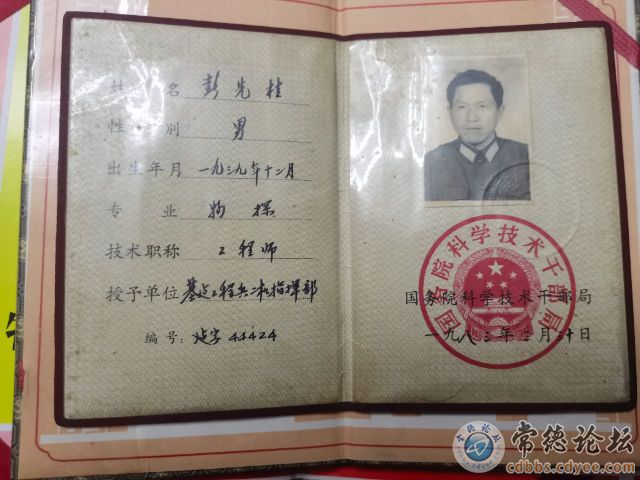 姓 名 彭先桂
性 别 男
出生年月 一九三九年十二月
专 业 物探
技术职称 工程师
授予单位 基建工程兵二机指挥部
编号: 建字 44424
国务院科学技术干部局
国务院科学技术干部局
一九八三年三月卅日
常德论坛
常德论坛
cdbbs.cdyee.com